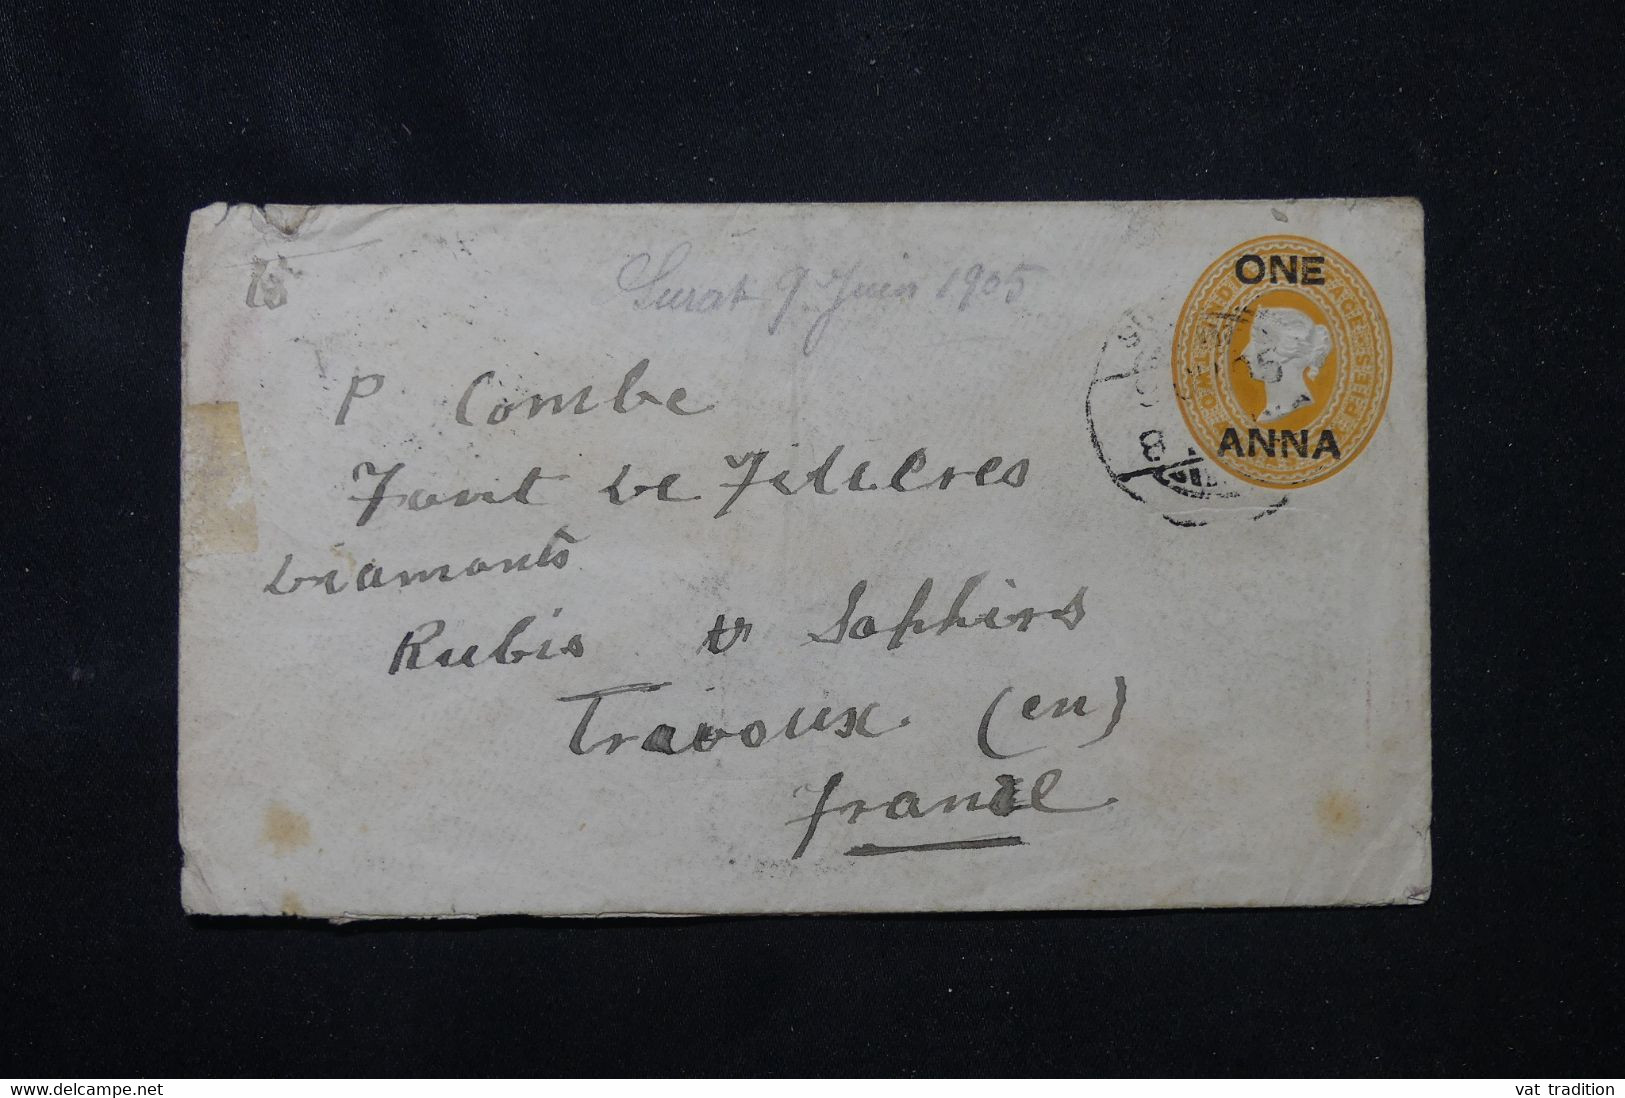 Surat 9 Juin 1905
ONE
ANNA
15
P Combe
Font de Filieres
Diamonts
Rubis & Saphirs
Travoux (en)
France
www.delcampe.net
vat_tradition